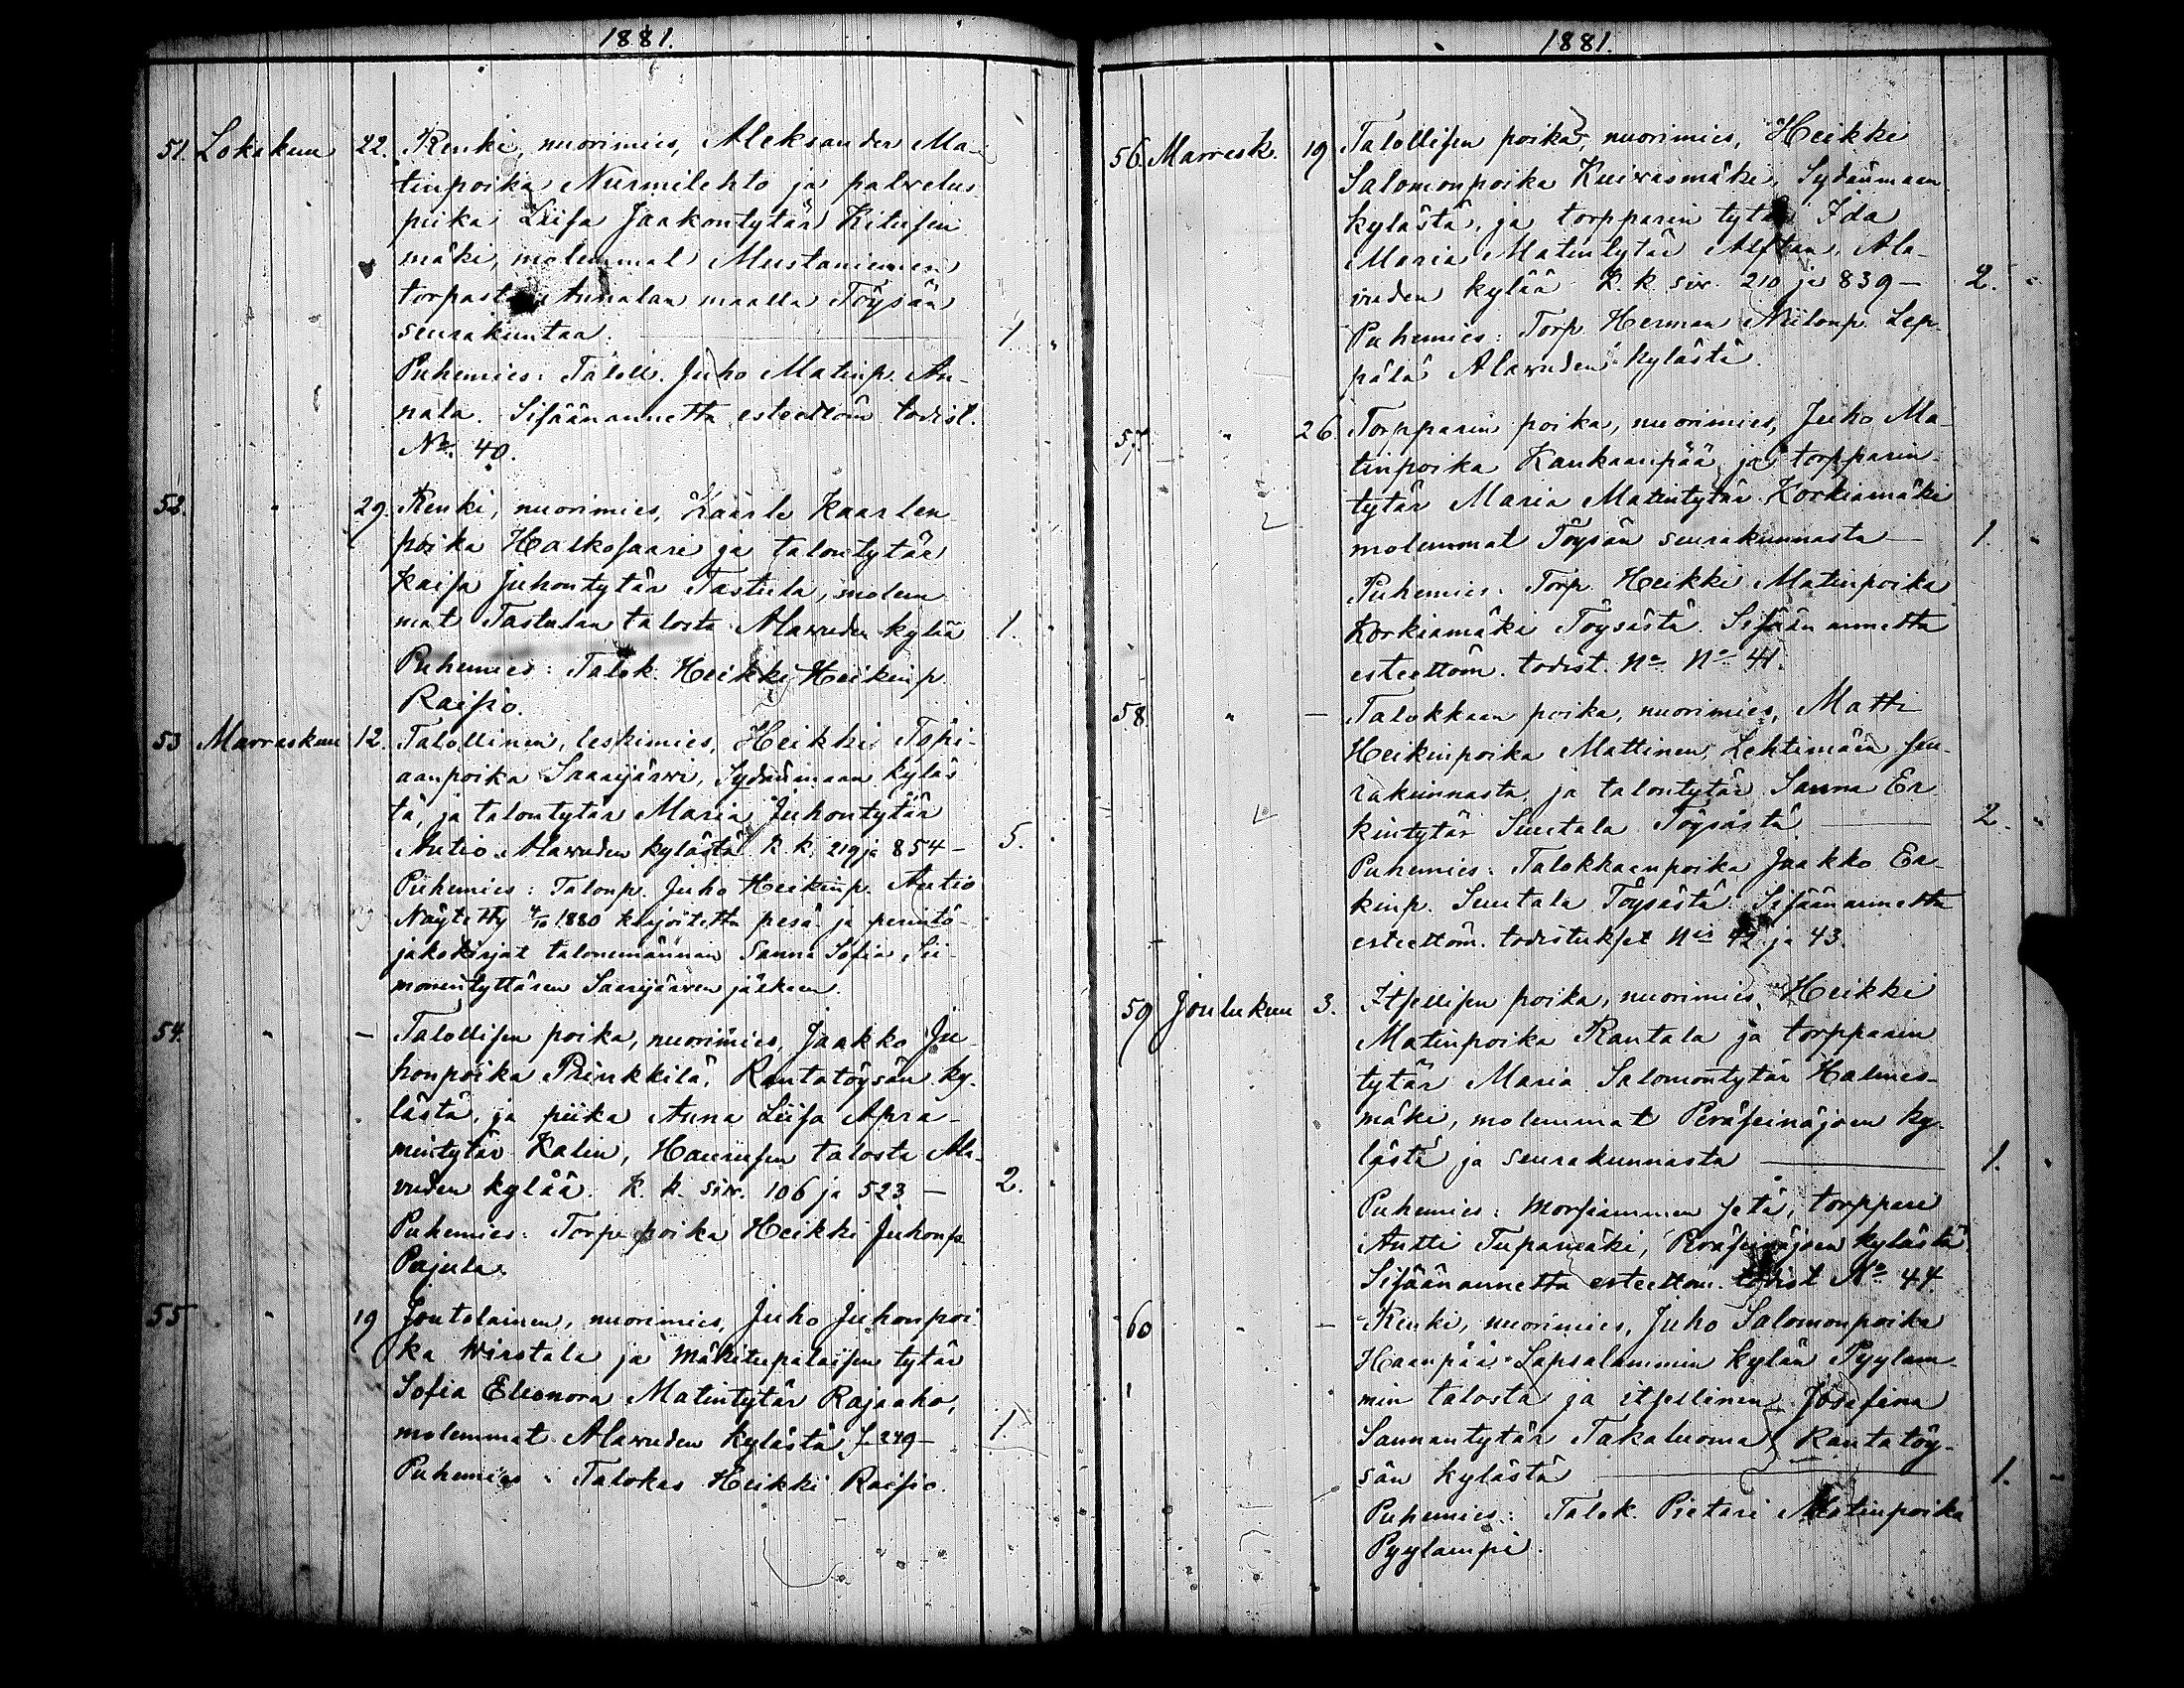 1881.
51. Lokakuu 22. Renki, nuorimies, Aleksander Ma-
tinpoika Nurmilehto ja palvelus
piika Liisa Jaakontytär Kituisen
mäki, molemmat Mustaniemen
torpasta Annalan maalla Töysän
seurakuntaa. 1.
Puhemies: Taloll. Juho Matinp. An-
nala. Sisäänannettu esteettöm. todist.
No. 40.
52. " 29. Renki, nuorimies, Kaarle Kaarlen
poika Halkosaari ja talontytär
Kaisa Juhontytär Tastula, molem
mat Tastulan talosta Alavuden kylää 1.
Puhemies: Talok. Heikki Heikinp.
Raisio.
53 Marraskuu 12. Talollinen, leskimies, Heikki Topi-
aanpoika Saarijärvi, Sydänmaan kyläs
tä, ja talontytär Maria Juhontytär
Autio Alavuden kylästä R. k. 219 ja 854 - 5.
Puhemies: Talonp. Juho Heikinp. Autio
Näytetty 4/10 1880 kirjoitettu pesä- ja perintö-
jakokirjat talonemännän Sanna Sofia Si-
montyttären Saarijärven jälkeen.
54. " - Talollisen poika, nuorimies, Jaakko Ju-
honpoika Prinkkilä, Rantatöysän ky-
lästä, ja piika Anna Liisa Apra-
mintytär Kalin, Haurusen talosta Ala-
vuden kylää. R. k. siv. 106 ja 523 - 2.
Puhemies: Torp. poika Heikki Juhonp.
Pajula.
55 " 19 Joutolainen, nuorimies, Juho Juhonpoi
ka Wirstala ja Mäkitupalaisen tytär
Sofia Eleonora Matintytär Rajaaho,
molemmat Alavuden kylästä 349 - 1.
Puhemies: Talokas Heikki Raisio.
1881.
56. Marrask. 19 Talollisen poika, nuorimies, Heikki
Salomonpoika Kuivasmäki, Sydänmaan
kylästä, ja torpparin tytär Ida
Maria Matintytär Alstan, Ala-
vuden kylää R. k. siv. 210 ja 839 - 2.
Puhemies: Torp. Herman Niilonp. Lep-
pälä Alavuden kylästä.
57. " 26. Torpparin poika, nuorimies, Juho Ma-
tinpoika Kankaanpää ja torpparin-
tytär Maria Matintytär Korkiamäki
molemmat Töysän seurakunnasta - 1.
Puhemies. Torp. Heikki Matinpoika
Korkiamäki Töysästä. Sisäänannettu
esteettöm. todist. No No 41.
58. " - Talokkaan poika, nuorimies, Matti
Heikinpoika Mattinen, Lehtimäen seu-
rakunnasta, ja talontytär Sanna Er
kintytär Suutala Töysästä 2.
Puhemies: Talokkaanpoika Jaakko Er-
kinp. Suutala Töysästä. Sisäänannettu
esteettöm. todistukset Nis 42 ja 43.
59 Joulukuu 3. Itsellisen poika, nuorimies, Heikki
Matinpoika Rantala ja torpparin
tytär Maria Salomontytär Halmes-
mäki, molemmat Peräseinäjoen ky-
lästä ja seurakunnasta 1.
Puhemies: Morsiammen setä, torppari
Antti Tupamäki, Peräseinäjoen kylästä
Sisäänannettu esteettöm. todist No 44.
60 " - Renki, nuorimies, Juho Salomonpoika
Haanpää Sapsalammin kylän Pyylam-
min talosta ja itsellinen Josefina
Sannantytär Takaluoma Rantatöy-
sän kylästä 1.
Puhemies: Talok. Pietari Matinpoika
Pyylampi.